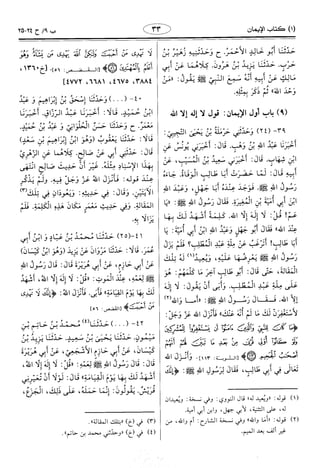 (١) كتاب الإيمان
٣٣
ب ٩/ ح ٢٤-٢٥
حدثنا أبو خالد الأحمر. ح وحدثنيه زهير بن
حرب. حدثنا يزيد بن هرون. كلاهما عن أبي
مالك عن أبيه أنه سمع النبي ﷺ يقول: «من
وحد الله» ثم ذكر بمثله.
(٩) باب أول الإيمان: قول لا إله إلا الله
٣٩-(٢٤) وحدثني حرملة بن يحيى التجيبي:
أخبرنا عبد الله بن وهب. قال: أخبرني يونس عن
ابن شهاب. قال: أخبرني سعيد بن المسيب، عن
أبيه. قال: لما حضرت أبا طالب الوفاة. جاءه
رسول الله ﷺ. فوجد عنده أبا جهل، وعبد الله
ابن أبي أمية بن المغيرة. فقال رسول الله ﷺ: «يا
عم! قل: لا إله إلا الله. كلمة أشهد لك بها
عند الله» فقال أبو جهل وعبد الله بن أبي أمية: يا
أبا طالب! أترغب عن ملة عبد المطلب؟ فلم يزل
رسول الله ﷺ يعرضها عليه، ويعيد له تلك
المقالة، حتى قال أبو طالب آخر ما كلمهم: هو
على ملة عبد المطلب. وأبى أن يقول: لا إله
إلا الله. فقال رسول الله ﷺ: «أما والله
لأستغفرن لك ما لم أنه عنك» فأنزل الله عز وجل:
﴿ما كان للنبي والذين آمنوا أن يستغفروا للمشركين
ولو كانوا أولي قربى من بعد ما تبين لهم أنهم
أصحاب الجحيم﴾ [التوبة: ١١٣]. وأنزل الله
تعالى في أبي طالب، فقال لرسول الله ﷺ: ﴿إنك
لا تهدي من أحببت ولكن الله يهدي من يشاء وهو
أعلم بالمهتدين﴾ [القصص: ٥٦]. [خ: ١٣٦٠،
٣٨٨٤، ٤٦٧٥، ٤٧٧٢، ٦٦٨١]
٤٠-(...) وحدثنا إسحق بن إبراهيم و عبد
ابن حميد. قالا: أخبرنا عبد الرزاق. أخبرنا
معمر. ح وحدثنا حسن الحلواني و عبد بن حميد.
قالا: حدثنا يعقوب (وهو ابن إبراهيم بن سعد)
قال: حدثني أبي عن صالح. كلاهما عن الزهري
بهذا الإسناد مثله. غير أن حديث صالح انتهى
عند قوله: فأنزل الله عز وجل فيه. ولم يذكر
الآيتين. وقال في حديثه: ويعودان في تلك
المقالة. وفي حديث معمر مكان هذه الكلمة. فلم
يزالا به.
٤١-(٢٥) حدثنا محمد بن عباد و ابن أبي
عمر. قالا: حدثنا مروان عن يزيد (وهو ابن كيسان)
عن أبي حازم، عن أبي هريرة قال: قال رسول الله
ﷺ لعمه، عند الموت: «قل: لا إله إلا الله، أشهد
لك بها يوم القيامة» فأبى. فأنزل الله: ﴿إنك لا تهدي
من أحببت﴾ [القصص: ٥٦].
٤٢-(...) حدثنا محمد بن حاتم بن
ميمون. حدثنا يحيى بن سعيد. حدثنا يزيد بن
كيسان، عن أبي حازم الأشجعي، عن أبي هريرة
قال: قال رسول الله ﷺ لعمه: «قل: لا إله إلا الله.
أشهد لك بها يوم القيامة» قال: لولا أن تعيرني
قريش. يقولون: إنما حمله، على ذلك، الجزع،
(١) قوله: «ويعيد له» قال النووي: وفي نسخة: ويعيدان
له، على التثنية، لأبي جهل، وابن أبي أمية.
(٢) قوله: «أما والله» وفي نسخة الشارح: أم والله، من
غير ألف بعد الميم.
(٣) في (خ) «بتلك المقالة».
(٤) في (ع) «وحدثني محمد بن حاتم».